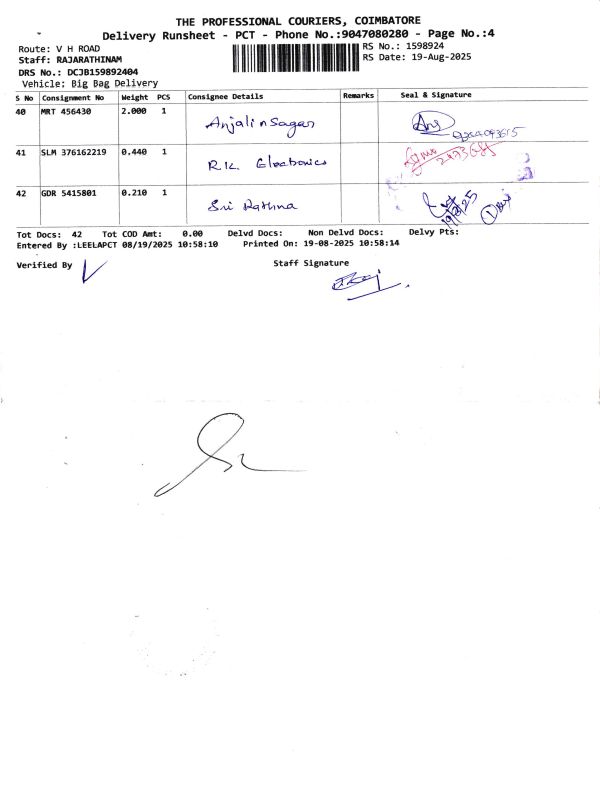 THE PROFESSIONAL COURIERS, COIMBATORE
Delivery Runsheet - PCT - Phone No.:9047080280 - Page No.:4
Route: V H ROAD
RS No.: 1598924
Staff: RAJARATHINAM
RS Date: 19-Aug-2025
DRS No.: DCJB159892404
Vehicle: Big Bag Delivery
S No Consignment No Weight PCS Consignee Details Remarks Seal & Signature
40 MRT 456430 2.000 1 Anjali n Sagar
41 SLM 376162219 0.440 1 R.K. Electronics
42 GDR 5415801 0.210 1 Sri Rathna
19/8/25
Tot Docs: 42 Tot COD Amt: 0.00 Delvd Docs: Non Delvd Docs: Delvy Pts:
Entered By :LEELAPCT 08/19/2025 10:58:10 Printed On: 19-08-2025 10:58:14
Verified By
Staff Signature